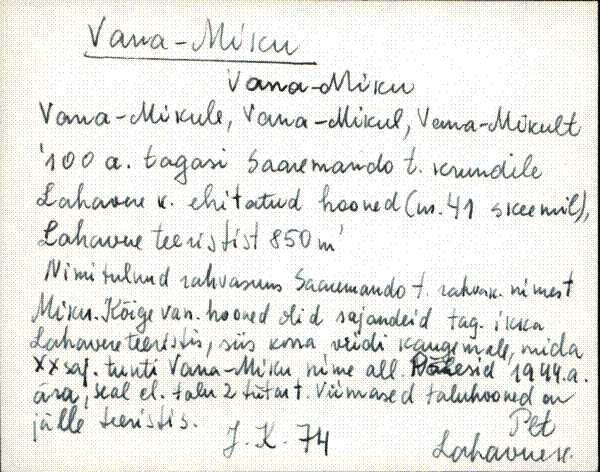 Vana-Miku
Vana-Miku
Vana-Mikule, Vana-Mikul, Vana-Mikult
'100 a. tagasi Saaremando t. krundile
Lahavere k. ehitatud hooned (nr. 41 skeemil),
Lahavere teeristist 850 m'
Nimi tulnud rahvasuus Saaremando t. rahvak. nimest
Miku. Kõige van. hooned olid sajandeid tag. ikka
Lahavere teeristis, siis korra veidi kaugemale, mida
XX saj. tunti Vana-Miku nime all. Põlesid 1944. a.
ära, seal el. talu 2 tütart. Viimased taluhooned on
jälle teeristis.
J. K. 74
Plt
Lahavere k.